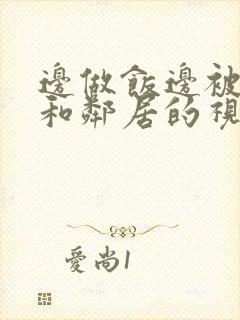 邊做飯邊被
和鄰居的視
愛尚1